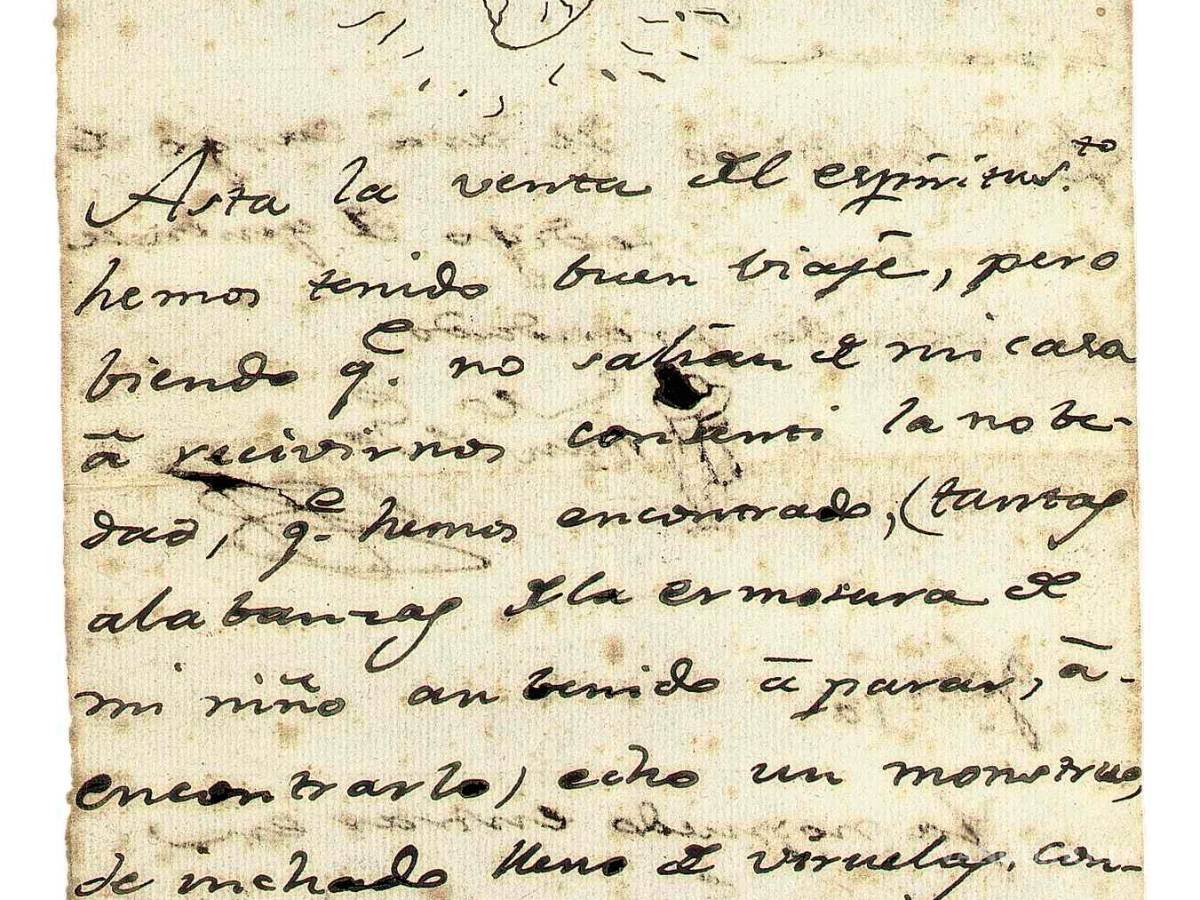 Asta la venta del espiritus.to
hemos tenido buen viajē, pero
biendo q.e no salian de mi casa
ā recivirnos consenti la nobe-
dad, q.e hemos encontrado, (tantas
alabanzas dela ermosura de
mi niño an benido ā parar, ā-
encontrarlo) echo un monstruo,
de inchado lleno de viruelas. con-